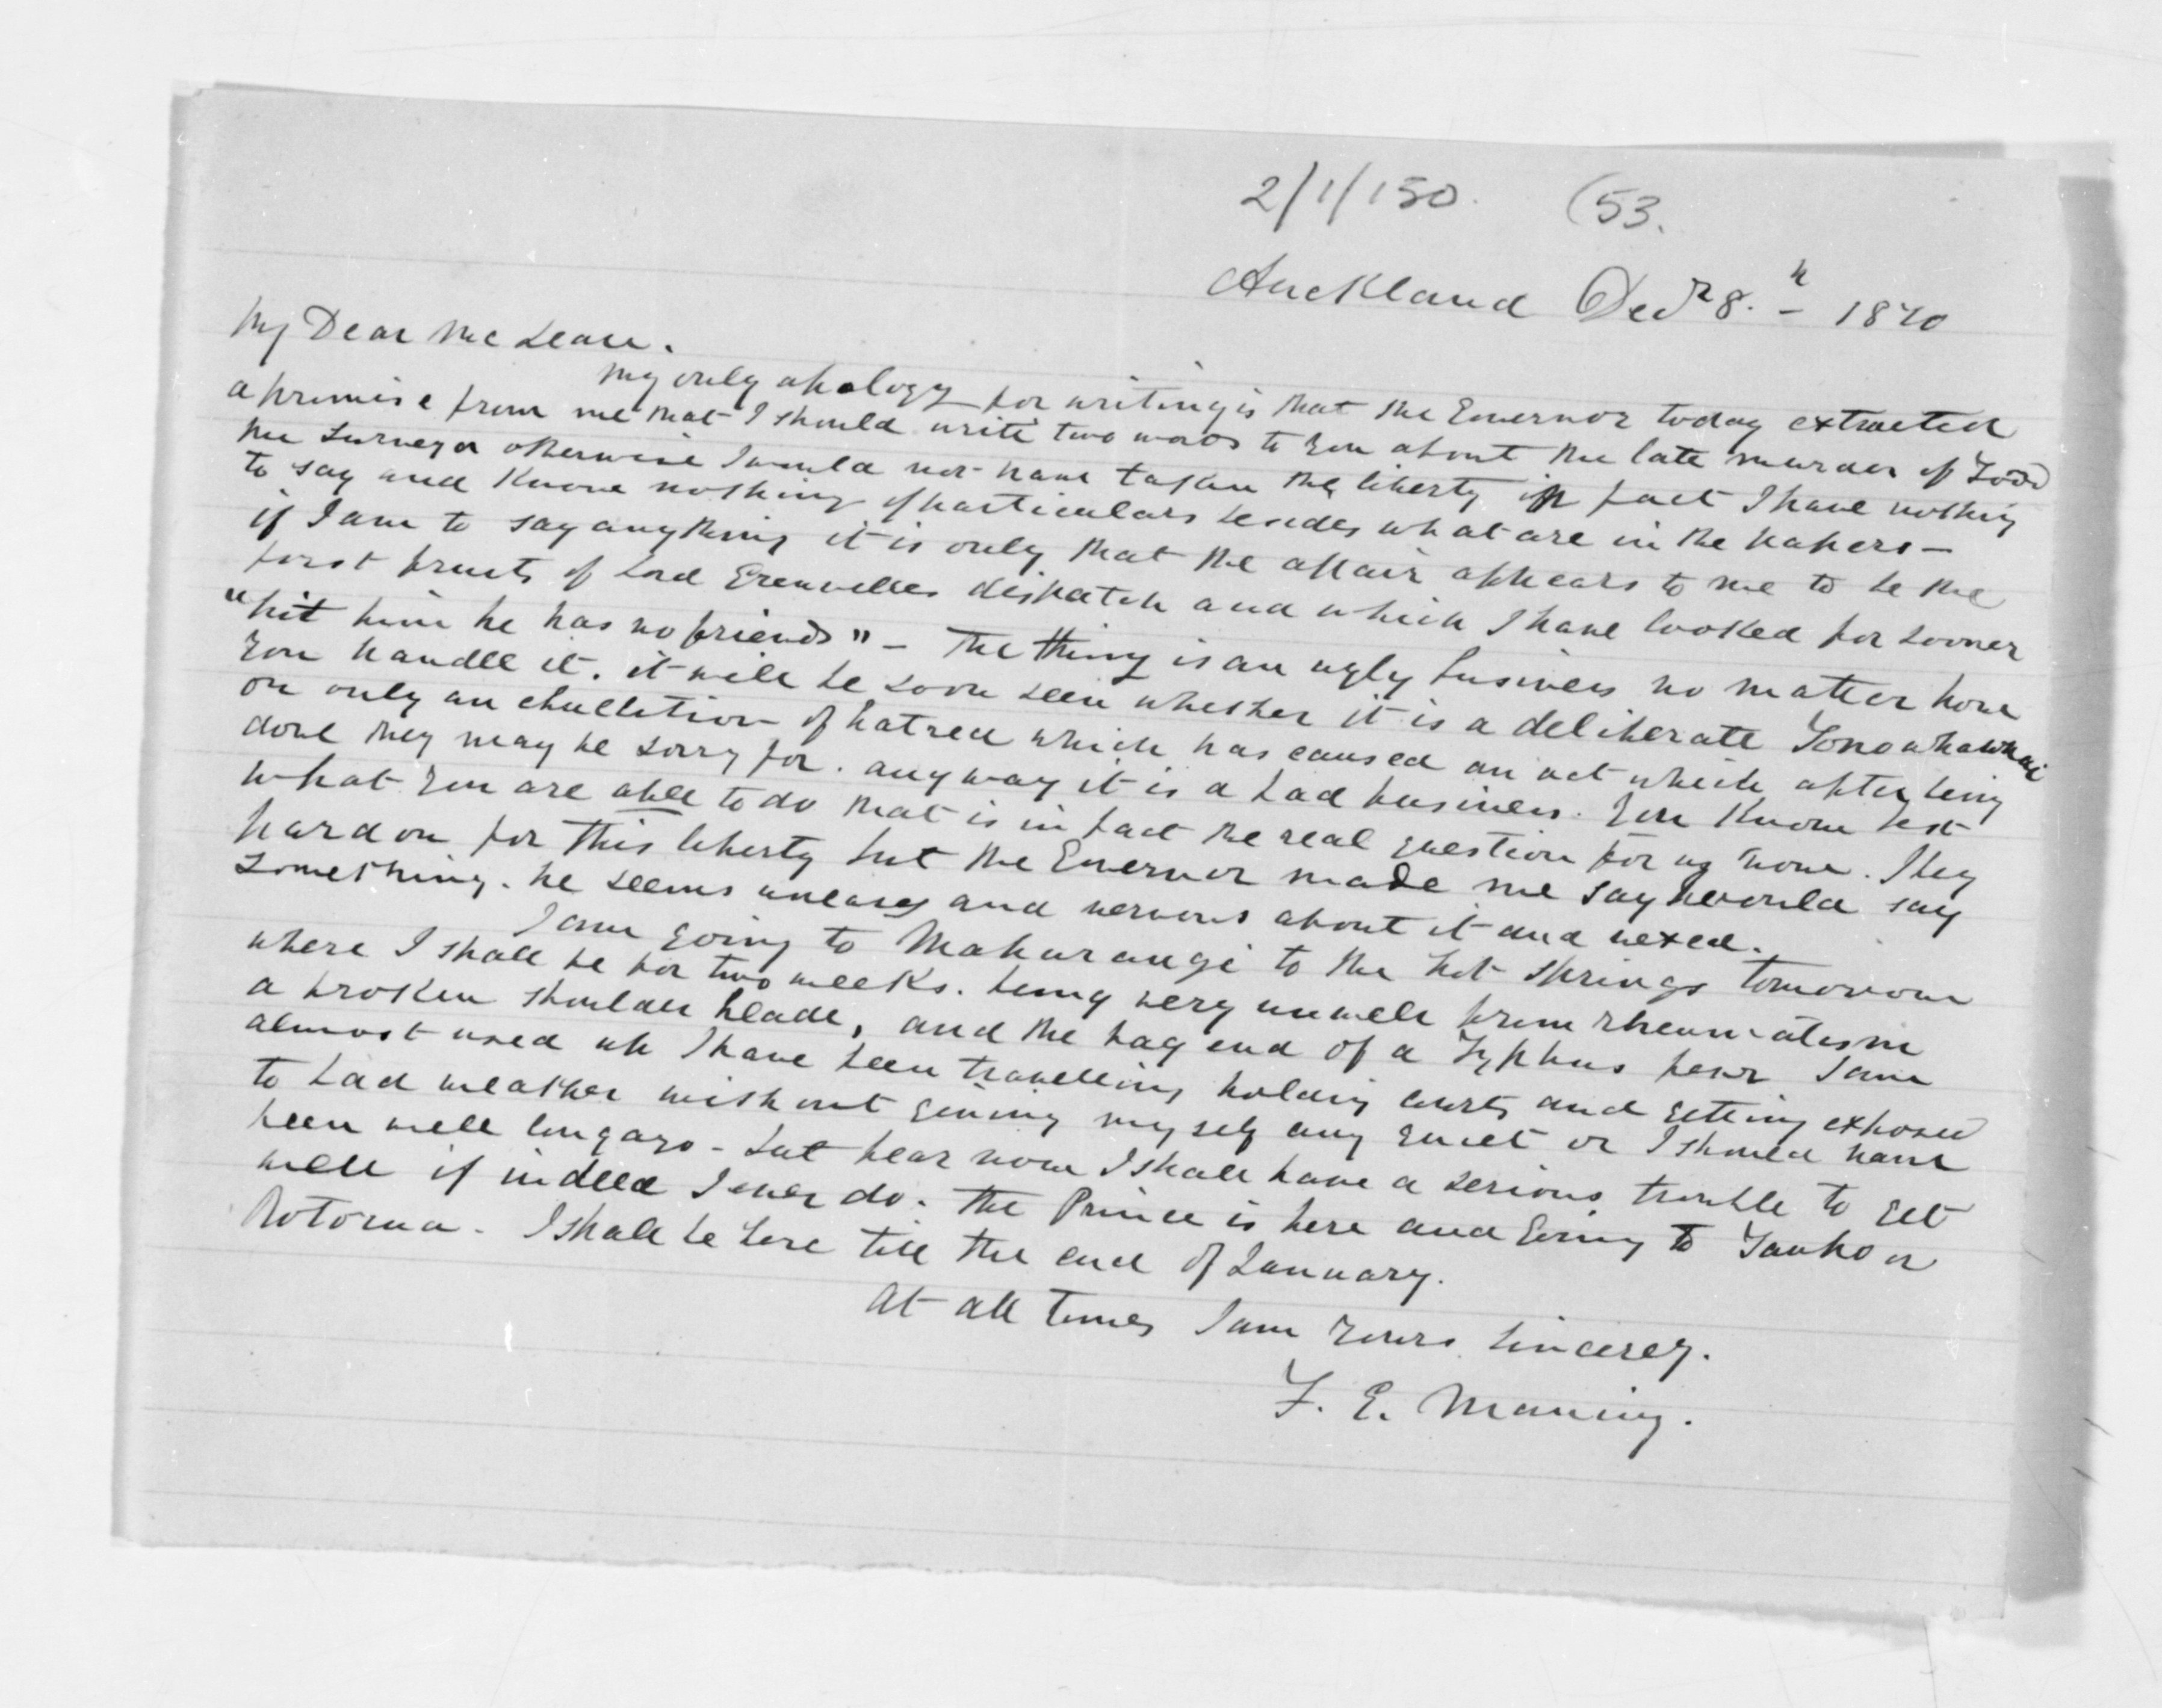 2/1/150. (53.
Auckland Decr 8.h - 1870
My Dear McLean.
My only apology for writing is that the Governor today extracted
a promise from me that I should write two words to you about the late murder of Todd
the Surveyor otherwise I would not have taken the liberty in fact I have nothing
to say and know nothing of particulars besides what are in the papers —
if I am to say anything it is only that the affair appears to me to be the
first fruits of Lord Grenvilles dispatch and which I have looked for sooner
"hit him he has no friends" — The thing is an ugly business no matter how
you handle it. it will be soon seen whether it is a deliberate
or only an ebullition of hatred which has caused an act which after being
done they may be sorry for. anyway it is a bad business. You know best
what you are able to do that is in fact the real question for us now. I beg
pardon for this liberty but the Governor made me say I would say
something. he seems uneasy and nervous about it and vexed.
I am going to Mahurangi to the hot springs tomorrow
where I shall be for two weeks. being very unwell from rheumatism
a broken shoulder blade, and the fag end of a Typhus fever I am
almost used up I have been travelling holding courts and getting exposed
to bad weather without giving myself any quiet or I should have
been well long ago - but fear now I shall have a serious trouble to get
well if indeed I ever do. The Prince is here and going to Taupo or
Rotorua - I shall be here till the end of January.
At all times I am yours sincerey.
F. E. Maning.